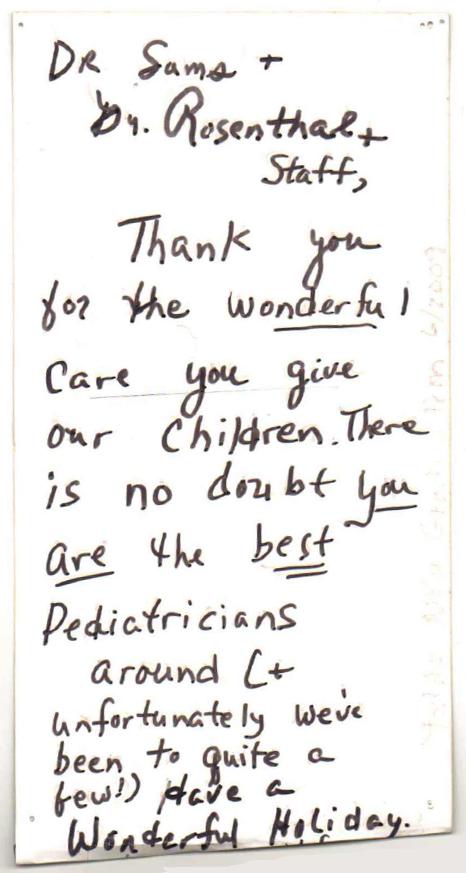 DR Sams +
Dr. Rosenthal +
Staff,
Thank you
for the wonderful
Care you give
our Children. There
is no doubt you
are the best
Pediatricians
around (+
unfortunately we've
been to quite a
few!) Have a
Wonderful Holiday.